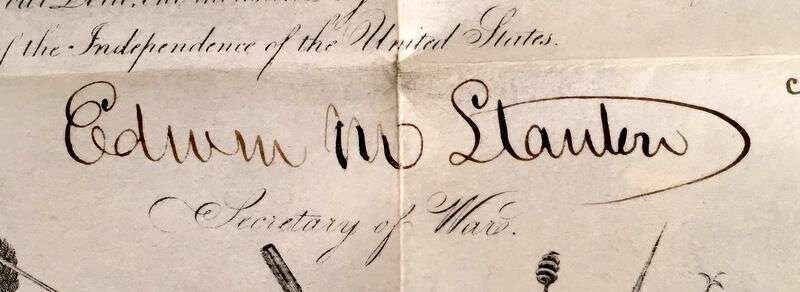 of the Independence of the United States.
Edwin M Stanton
Secretary of War.